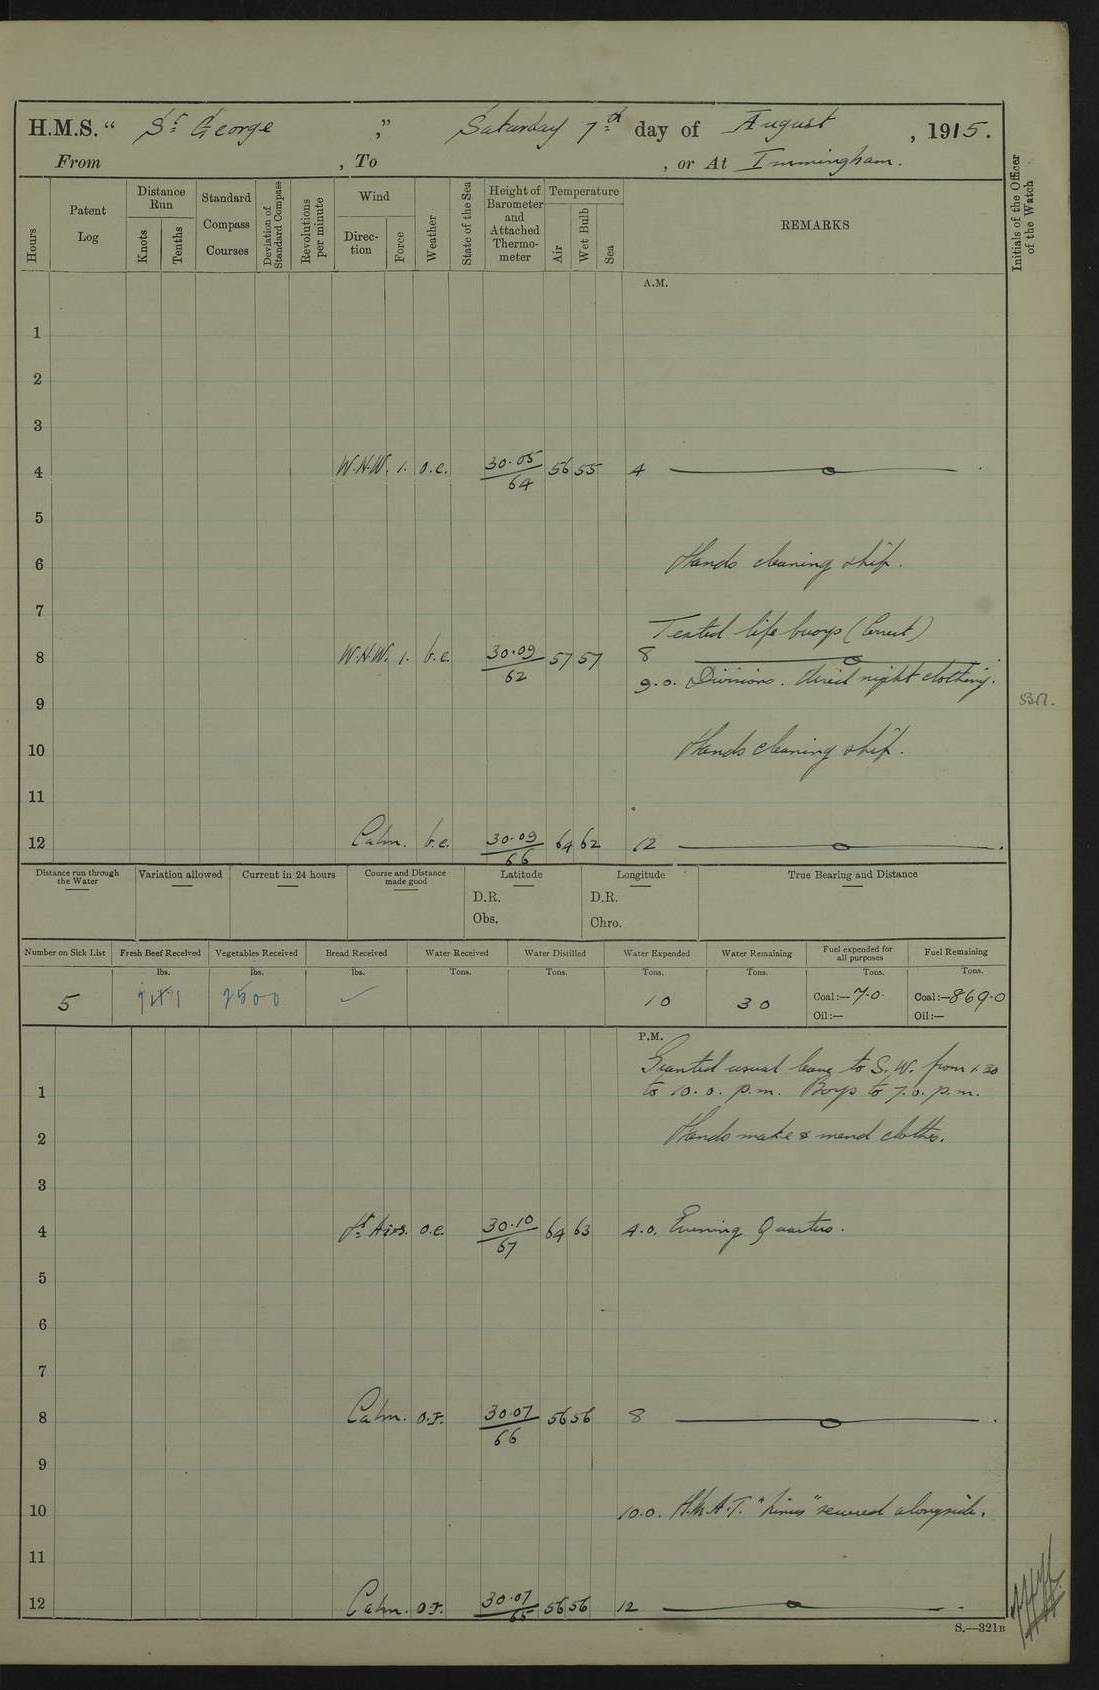 H.M.S. "St George" Saturday 7th day of August, 1915.
From , To , or At Immingham.
Hours
Patent Log
Distance Run
Knots
Tenths
Standard Compass Courses
Deviation of Standard Compass
Revolutions per minute
Wind
Direction
Force
Weather
State of the Sea
Height of Barometer and Attached Thermometer
Temperature
Air
Wet Bulb
Sea
REMARKS
Initials of the Officer of the Watch
A.M.
1
2
3
4 W.N.W. 1. o.c. 30.05/64 56 55 4
5
6 Hands cleaning ship.
7
Tested life buoys (Correct)
8 W.N.W. 1. b.c. 30.09/62 57 57 8
9.0. Divisions. night clothing.
9
10 Hands cleaning ship.
11
12 Calm. b.c. 30.09/66 64 62 12
Distance run through the Water
Variation allowed
Current in 24 hours
Course and Distance made good
Latitude
D.R.
Obs.
Longitude
D.R.
Chro.
True Bearing and Distance
Number on Sick List
Fresh Beef Received
Vegetables Received
Bread Received
Water Received
Water Distilled
Water Expended
Water Remaining
Fuel expended for all purposes
Fuel Remaining
lbs. lbs. lbs. Tons. Tons. Tons. Tons. Tons. Tons.
5 10 30 Coal:—7.0 Coal:—869.0
Oil:— Oil:—
P.M.
Granted usual leave to S.W. from 1.30
1 to 10.0. p.m. Boys to 7.0. p.m.
2 Hands make & mend clothes.
3
4 Lt Airs. o.c. 30.10/67 64 63 4.0. Evening Quarters.
5
6
7
8 Calm. o.F. 30.07/66 56 56 8
9
10 10.0. H.M.A.T. secured alongside.
11
12 Calm. o.F. 30.07/65 56 56 12
S.—321B